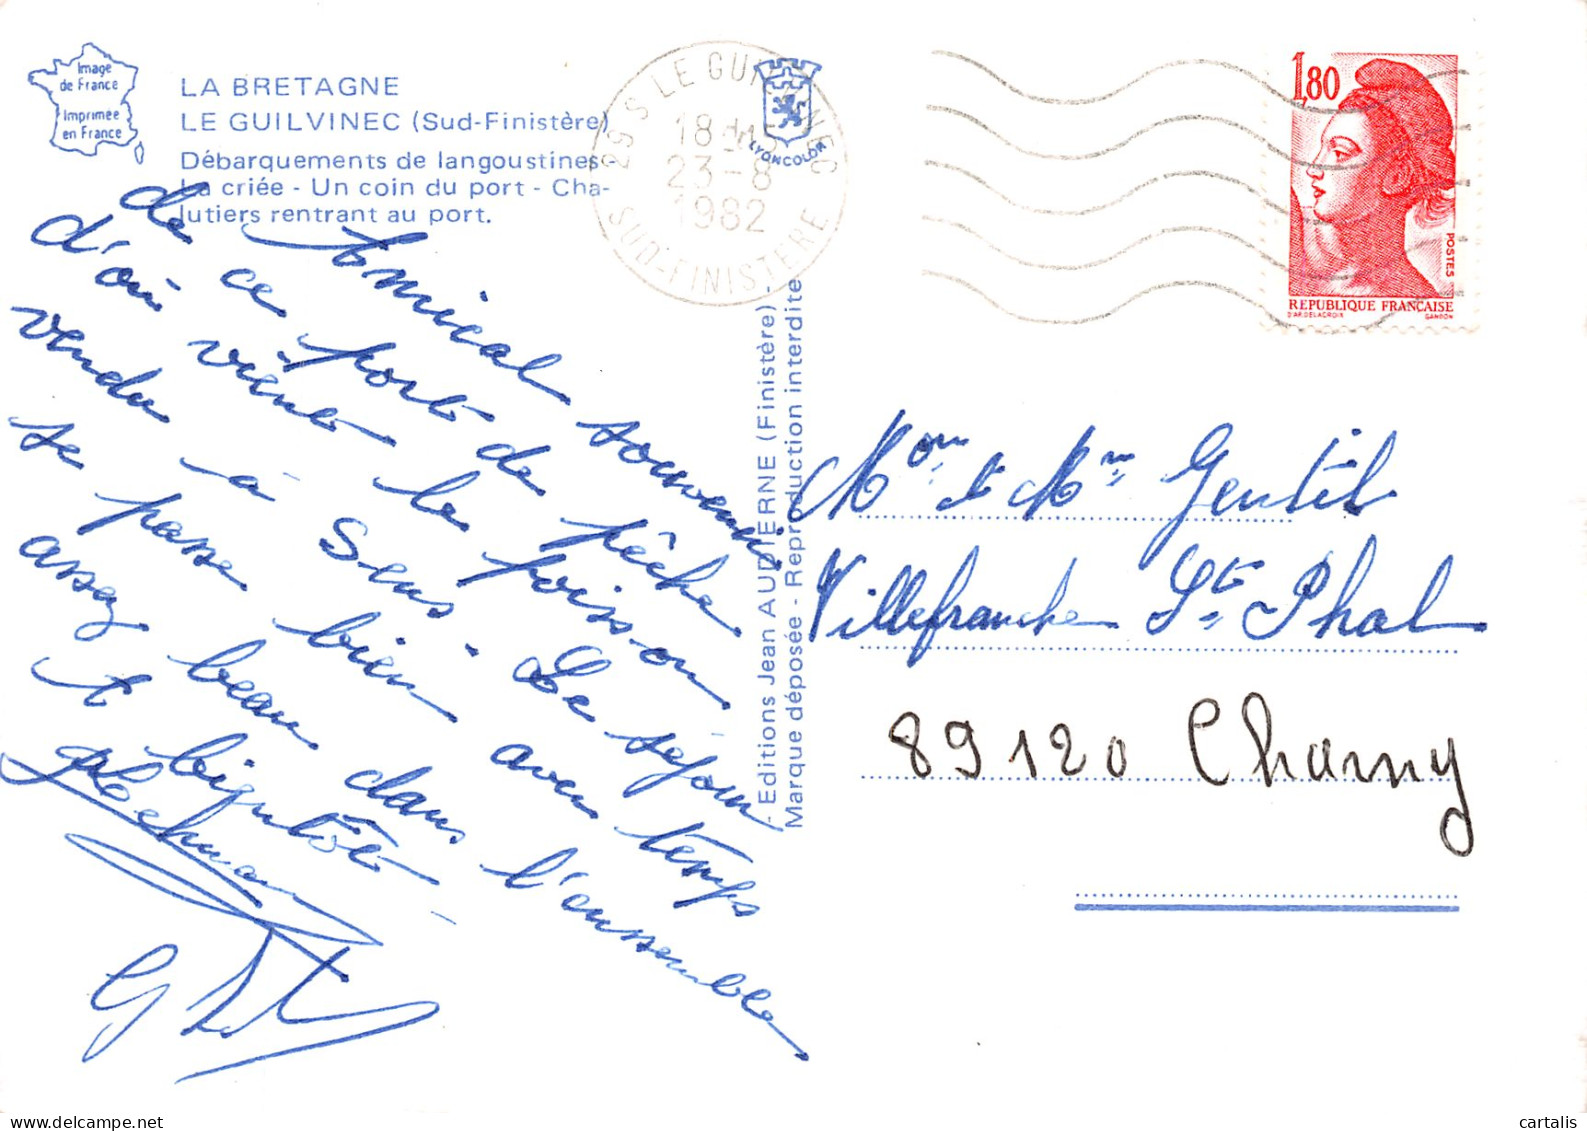 Image
de France
Imprimée
en France
LA BRETAGNE
LE GUILVINEC (Sud-Finistère)
Débarquements de langoustines -
La criée - Un coin du port - Cha-
lutiers rentrant au port.
29 S LE GUILVINEC
18 H 15
23-8
1982
SUD-FINISTERE
LYONCOLOR
1,80
POSTES
REPUBLIQUE FRANÇAISE
D'AP. DELACROIX GANDON
- Editions Jean AUDIERNE (Finistère) -
Marque déposée - Reproduction interdite
Amical souvenir
de ce port de pêche
d'où vient le poisson
vendu à Sens. Le séjour
se passe bien avec temps
assez beau dans l'ensemble
A bientôt
G
Mon & Mme Gentil
Villefranche St Phal
89120 Charny
cartalis
delcampe.net